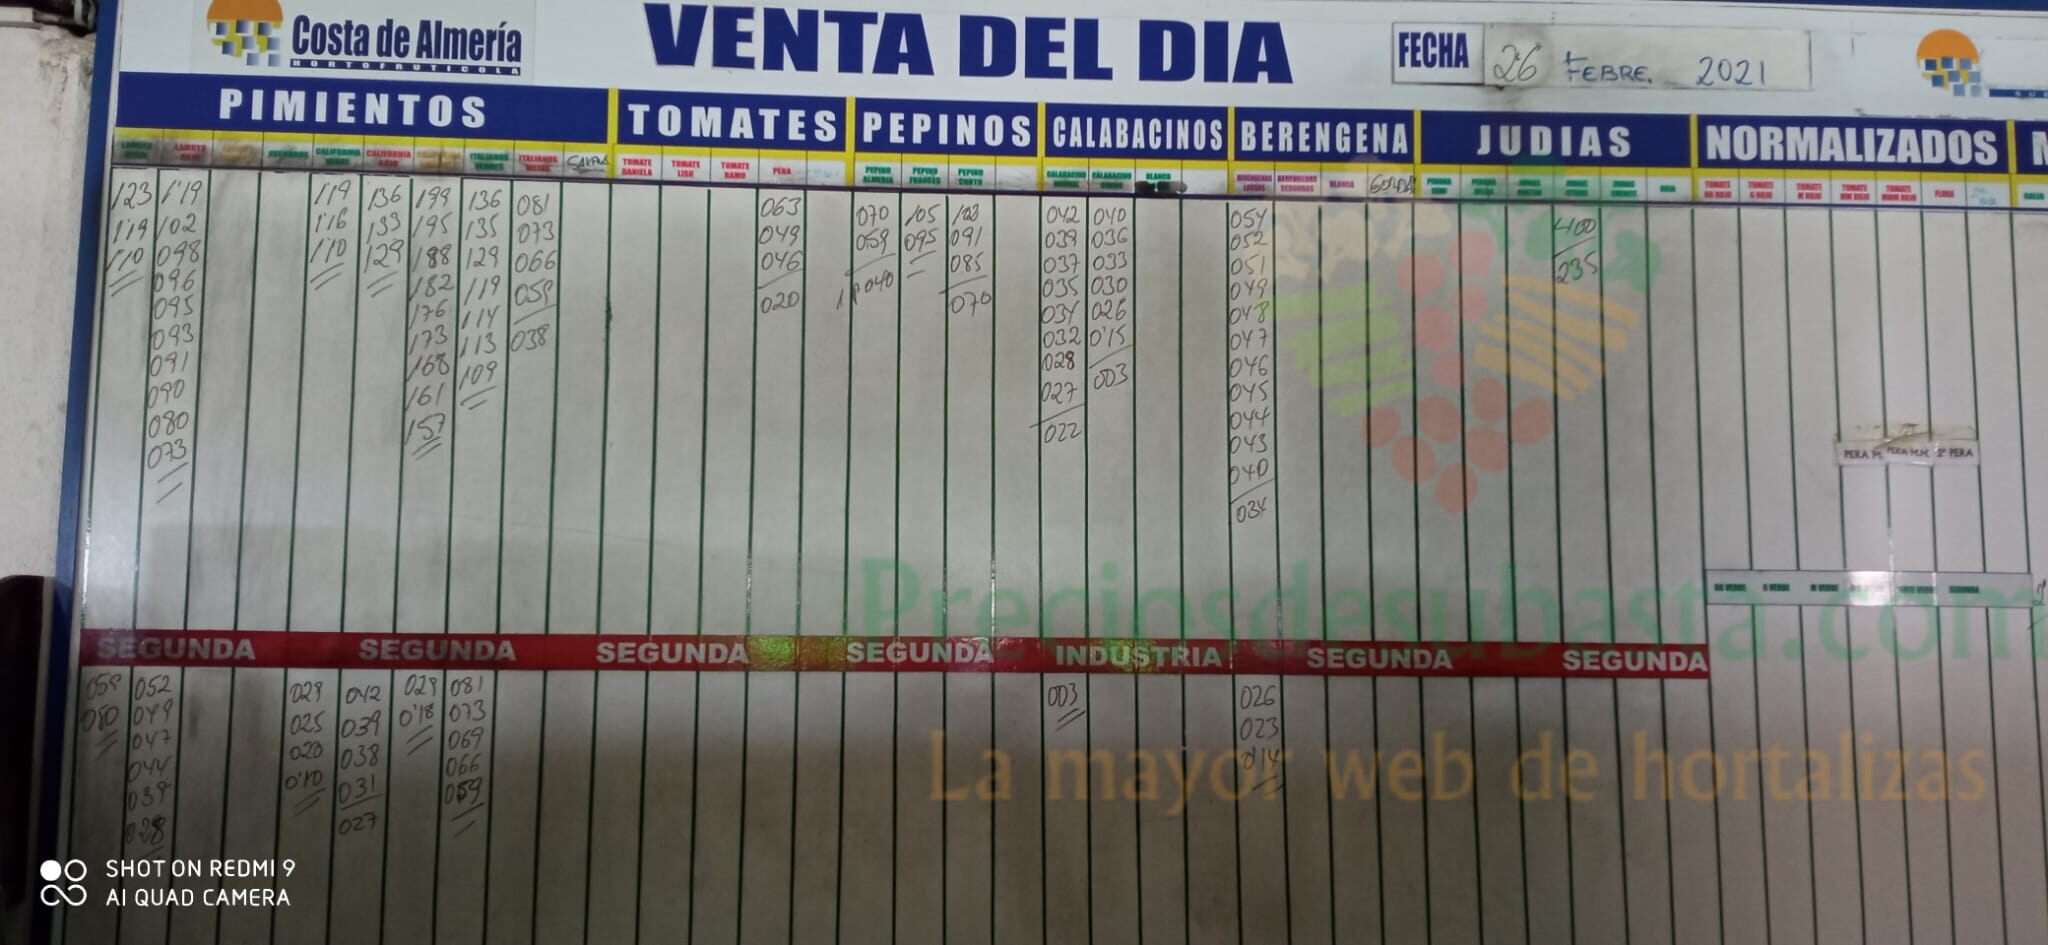 Costa de Almería
HORTOFRUTICOLA
VENTA DEL DIA
FECHA 26 FEBRE. 2021
PIMIENTOS TOMATES PEPINOS CALABACINOS BERENGENA JUDIAS NORMALIZADOS
LAMUYO ROJO CALIFORNIA VERDE CALIFORNIA ROJO ITALIANOS VERDES ITALIANOS ROJOS TOMATE DANIELA TOMATE LISO TOMATE RAMO PERA PEPINO ALMERIA PEPINO FRANCES PEPINO CORTO BLANCO BERENGENAS LARGAS BERENGENAS REDONDAS BLANCA GORDA FLORA
123 1'19 119 136 199 136 081 063 070 105 103 042 040 054 400
1'19 102 1'16 133 195 135 073 049 059 095 091 039 036 052 235
1'10 098 1'10 129 188 129 066 046 040 085 037 033 051
096 182 119 059 020 070 035 030 049
095 176 114 038 034 026 048
093 173 113 032 0'15 047
091 168 109 028 003 046
090 161 027 045
080 157 022 044
073 043
040
034
PERA M. PERA M.M. 2ª PERA
GG VERDE G VERDE M VERDE SEGUNDA
SEGUNDA SEGUNDA SEGUNDA SEGUNDA INDUSTRIA SEGUNDA SEGUNDA
059 052 029 042 029 081 003 026
050 049 025 039 0'18 073 023
047 020 038 069 0'14
044 0'10 031 066
039 027 059
028
Preciosdesubasta.com
La mayor web de hortalizas
SHOT ON REDMI 9
AI QUAD CAMERA